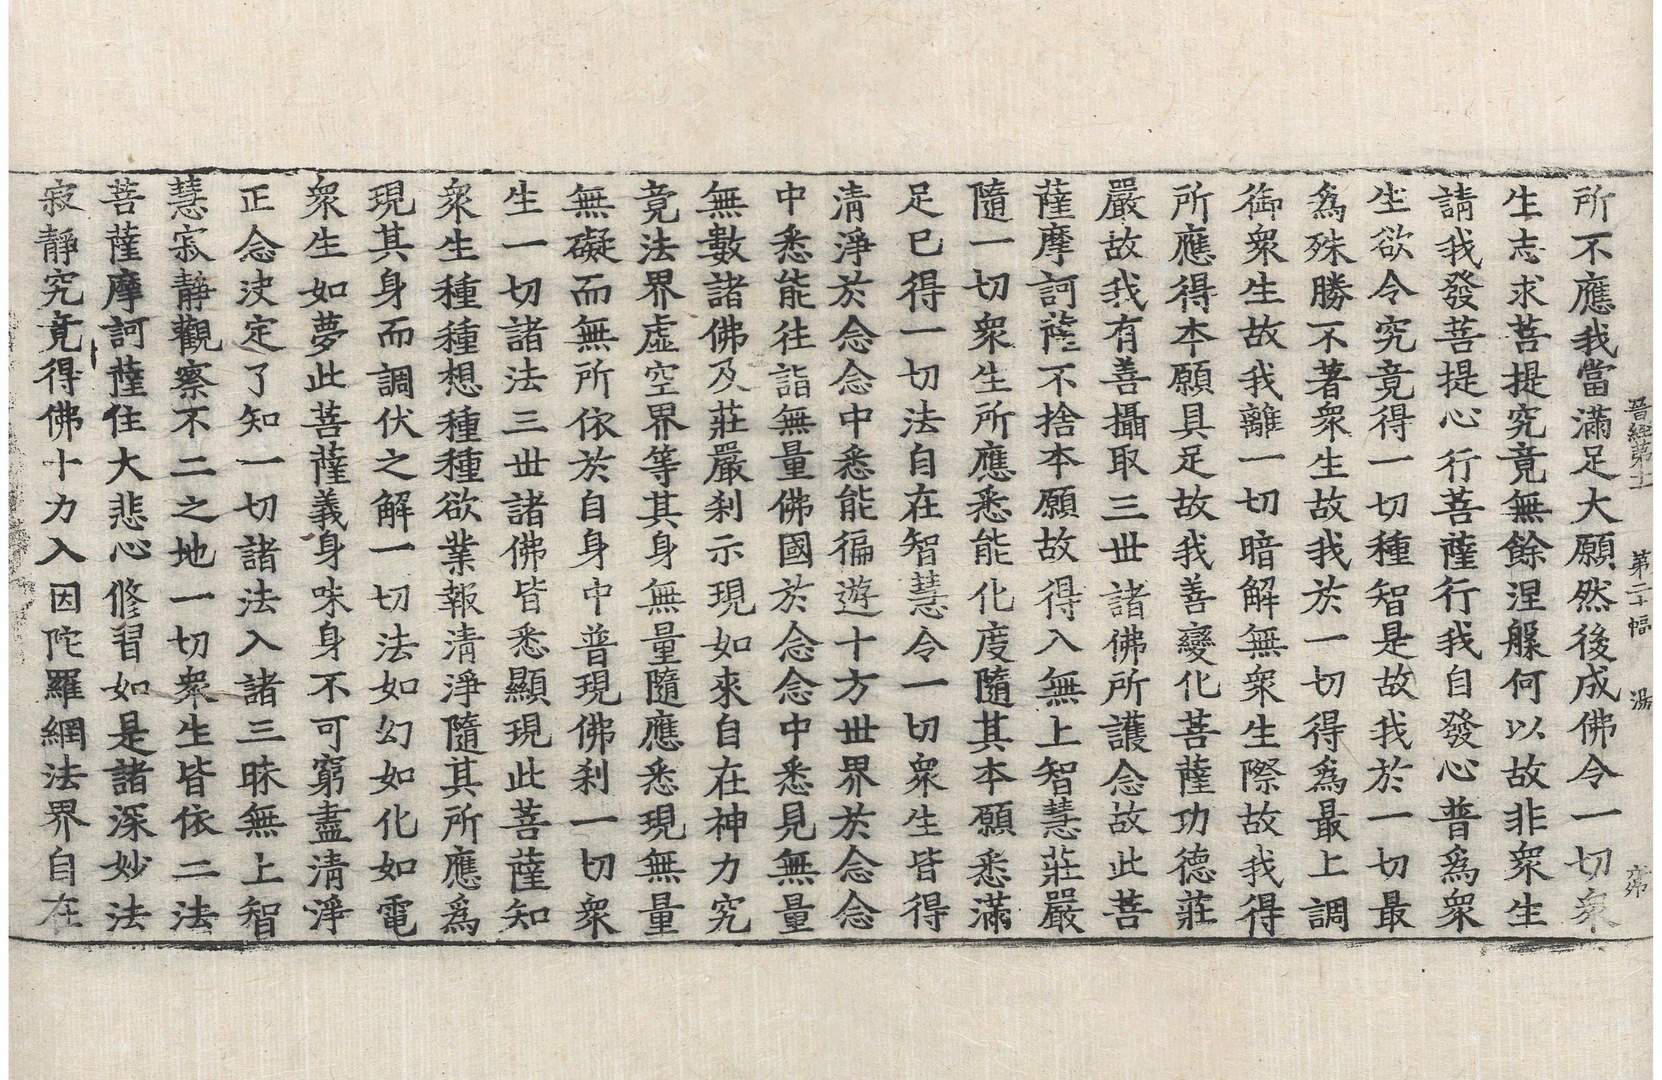 晉經第十 第二十幅 湯 齊
所不應我當滿足大願然後成佛令一切衆
生志求菩提究竟無餘涅槃何以故非衆生
請我發菩提心行菩薩行我自發心普爲衆
生欲令究竟得一切種智是故我於一切最
爲殊勝不著衆生故我於一切得爲最上調
御衆生故我離一切暗解無衆生際故我得
所應得本願具足故我善變化菩薩功德莊
嚴故我有善攝取三世諸佛所護念故此菩
薩摩訶薩不捨本願故得入無上智慧莊嚴
隨一切衆生所應悉能化度隨其本願悉滿
足已得一切法自在智慧令一切衆生皆得
清淨於念念中悉能徧遊十方世界於念念
中悉能往詣無量佛國於念念中悉見無量
無數諸佛及莊嚴刹示現如來自在神力究
竟法界虛空界等其身無量隨應悉現無量
無礙而無所依於自身中普現佛刹一切衆
生一切諸法三世諸佛皆悉顯現此菩薩知
衆生種種想種種欲業報清淨隨其所應爲
現其身而調伏之解一切法如幻如化如電
衆生如夢此菩薩義身味身不可窮盡清淨
正念決定了知一切諸法入諸三昧無上智
慧寂靜觀察不二之地一切衆生皆依二法
菩薩摩訶薩住大悲心修習如是諸深妙法
寂靜究竟得佛十力入因陀羅網法界自在